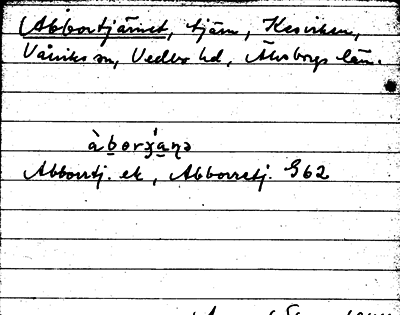 Abbortjärnet, tjärn, Kesviken,
Vårviks sn, Vedbo hd, Älvsborgs län.
àborʒ́aṇə
Abborrtj. ek, Abborretj. G62